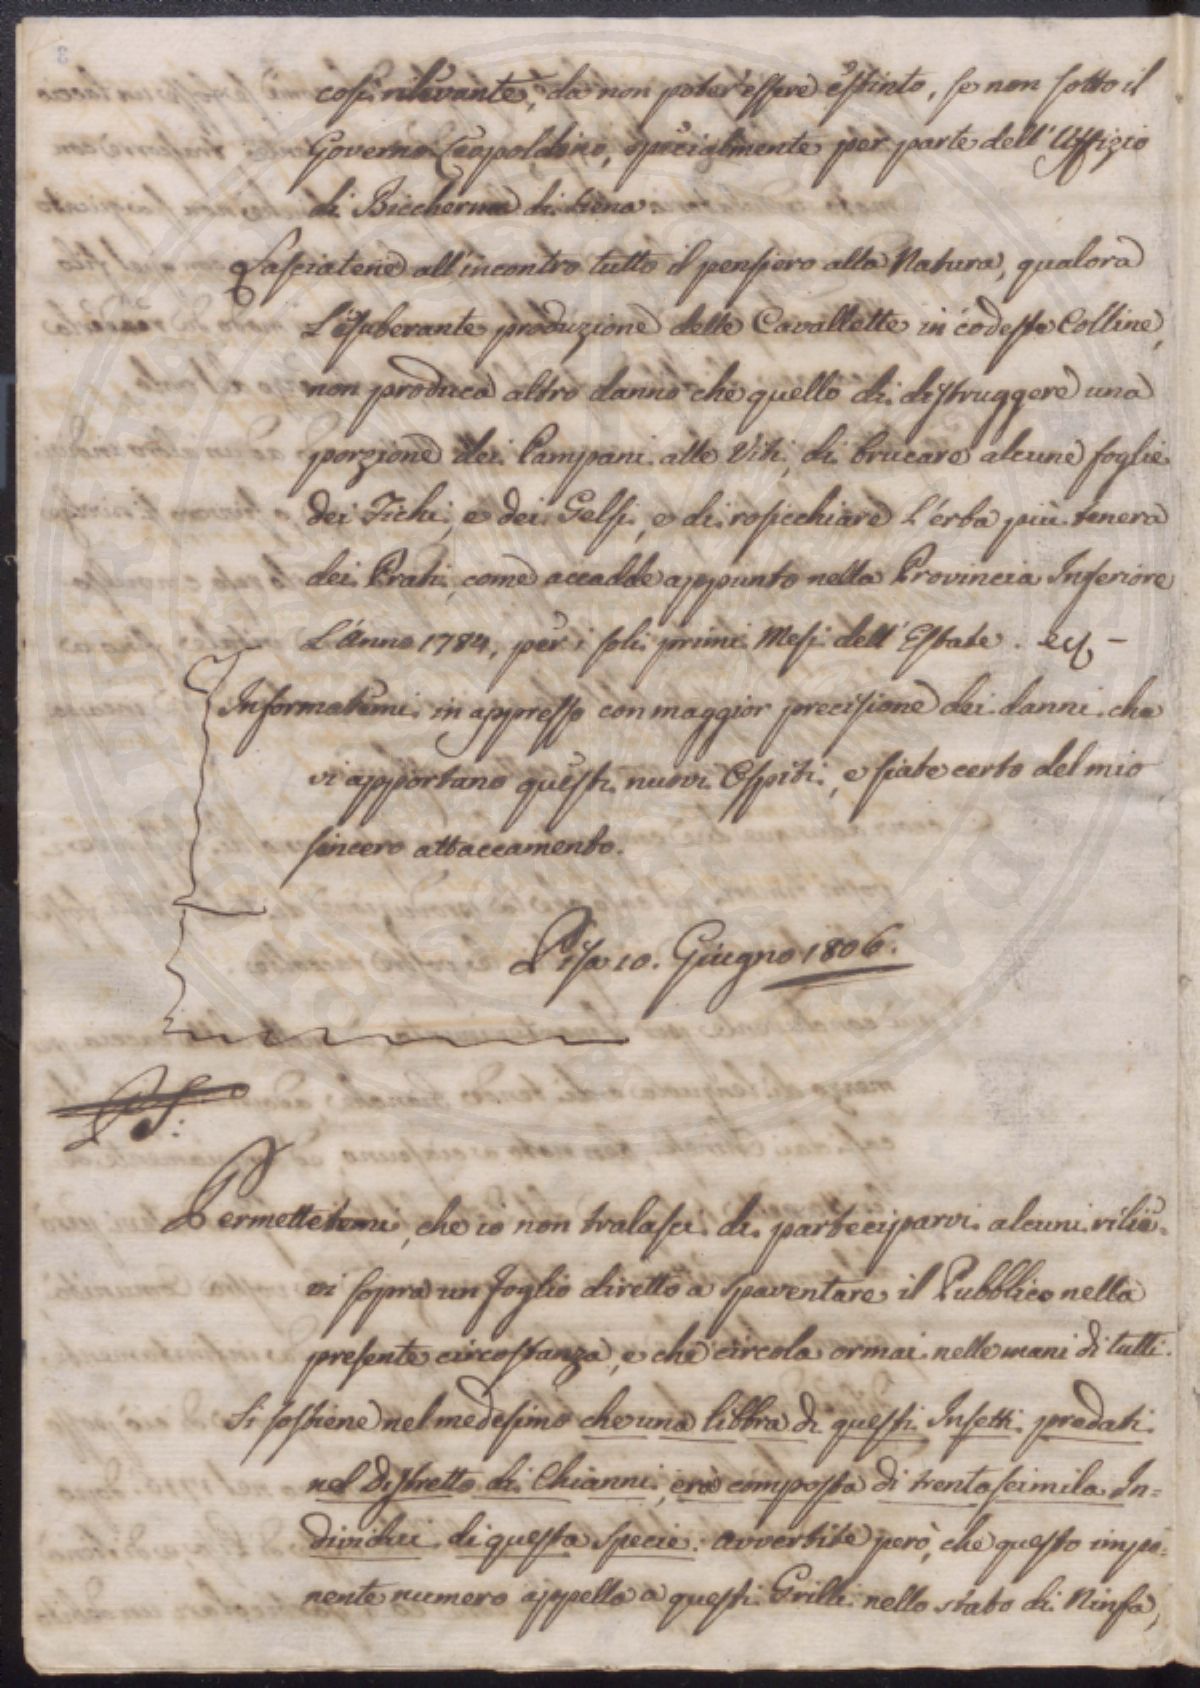 così rilevante, da non poter essere estinto, se non sotto il
Governo Leopoldino, specialmente per parte dell'Uffizio
di Biccherna di Siena
Lasciatene all'incontro tutto il pensiero alla Natura, qualora
L'esuberante produzione delle Cavallette in codeste Colline,
non produca altro danno che quello di distruggere una
porzione dei Pampani alle Viti, di brucare alcune foglie
dei Fichi, e dei Gelsi, e di rosicchiare L'erba più tenera
dei Prati, come accadde appunto nella Provincia Inferiore
L'Anno 1784, per i soli primi Mesi dell'Estate.
Informatemi in appresso con maggior precisione dei danni che
vi apportano questi nuovi Ospiti, e siate certo del mio
sincero attaccamento.
Pisa 10. Giugno 1806.
PS:
Permettetemi, che io non tralasci di parteciparvi alcuni rilie=
vi sopra un foglio diretto a spaventare il Pubblico nella
presente circostanza, e che circola ormai nelle mani di tutti.
Si sostiene nel medesimo che una libbra di questi Insetti predati
nel Distretto di Chianni, era composta di trentaseimila In=
dividui di questa specie: avvertite però, che questo impo=
nente numero appella a questi Grilli nello stato di Ninfa,